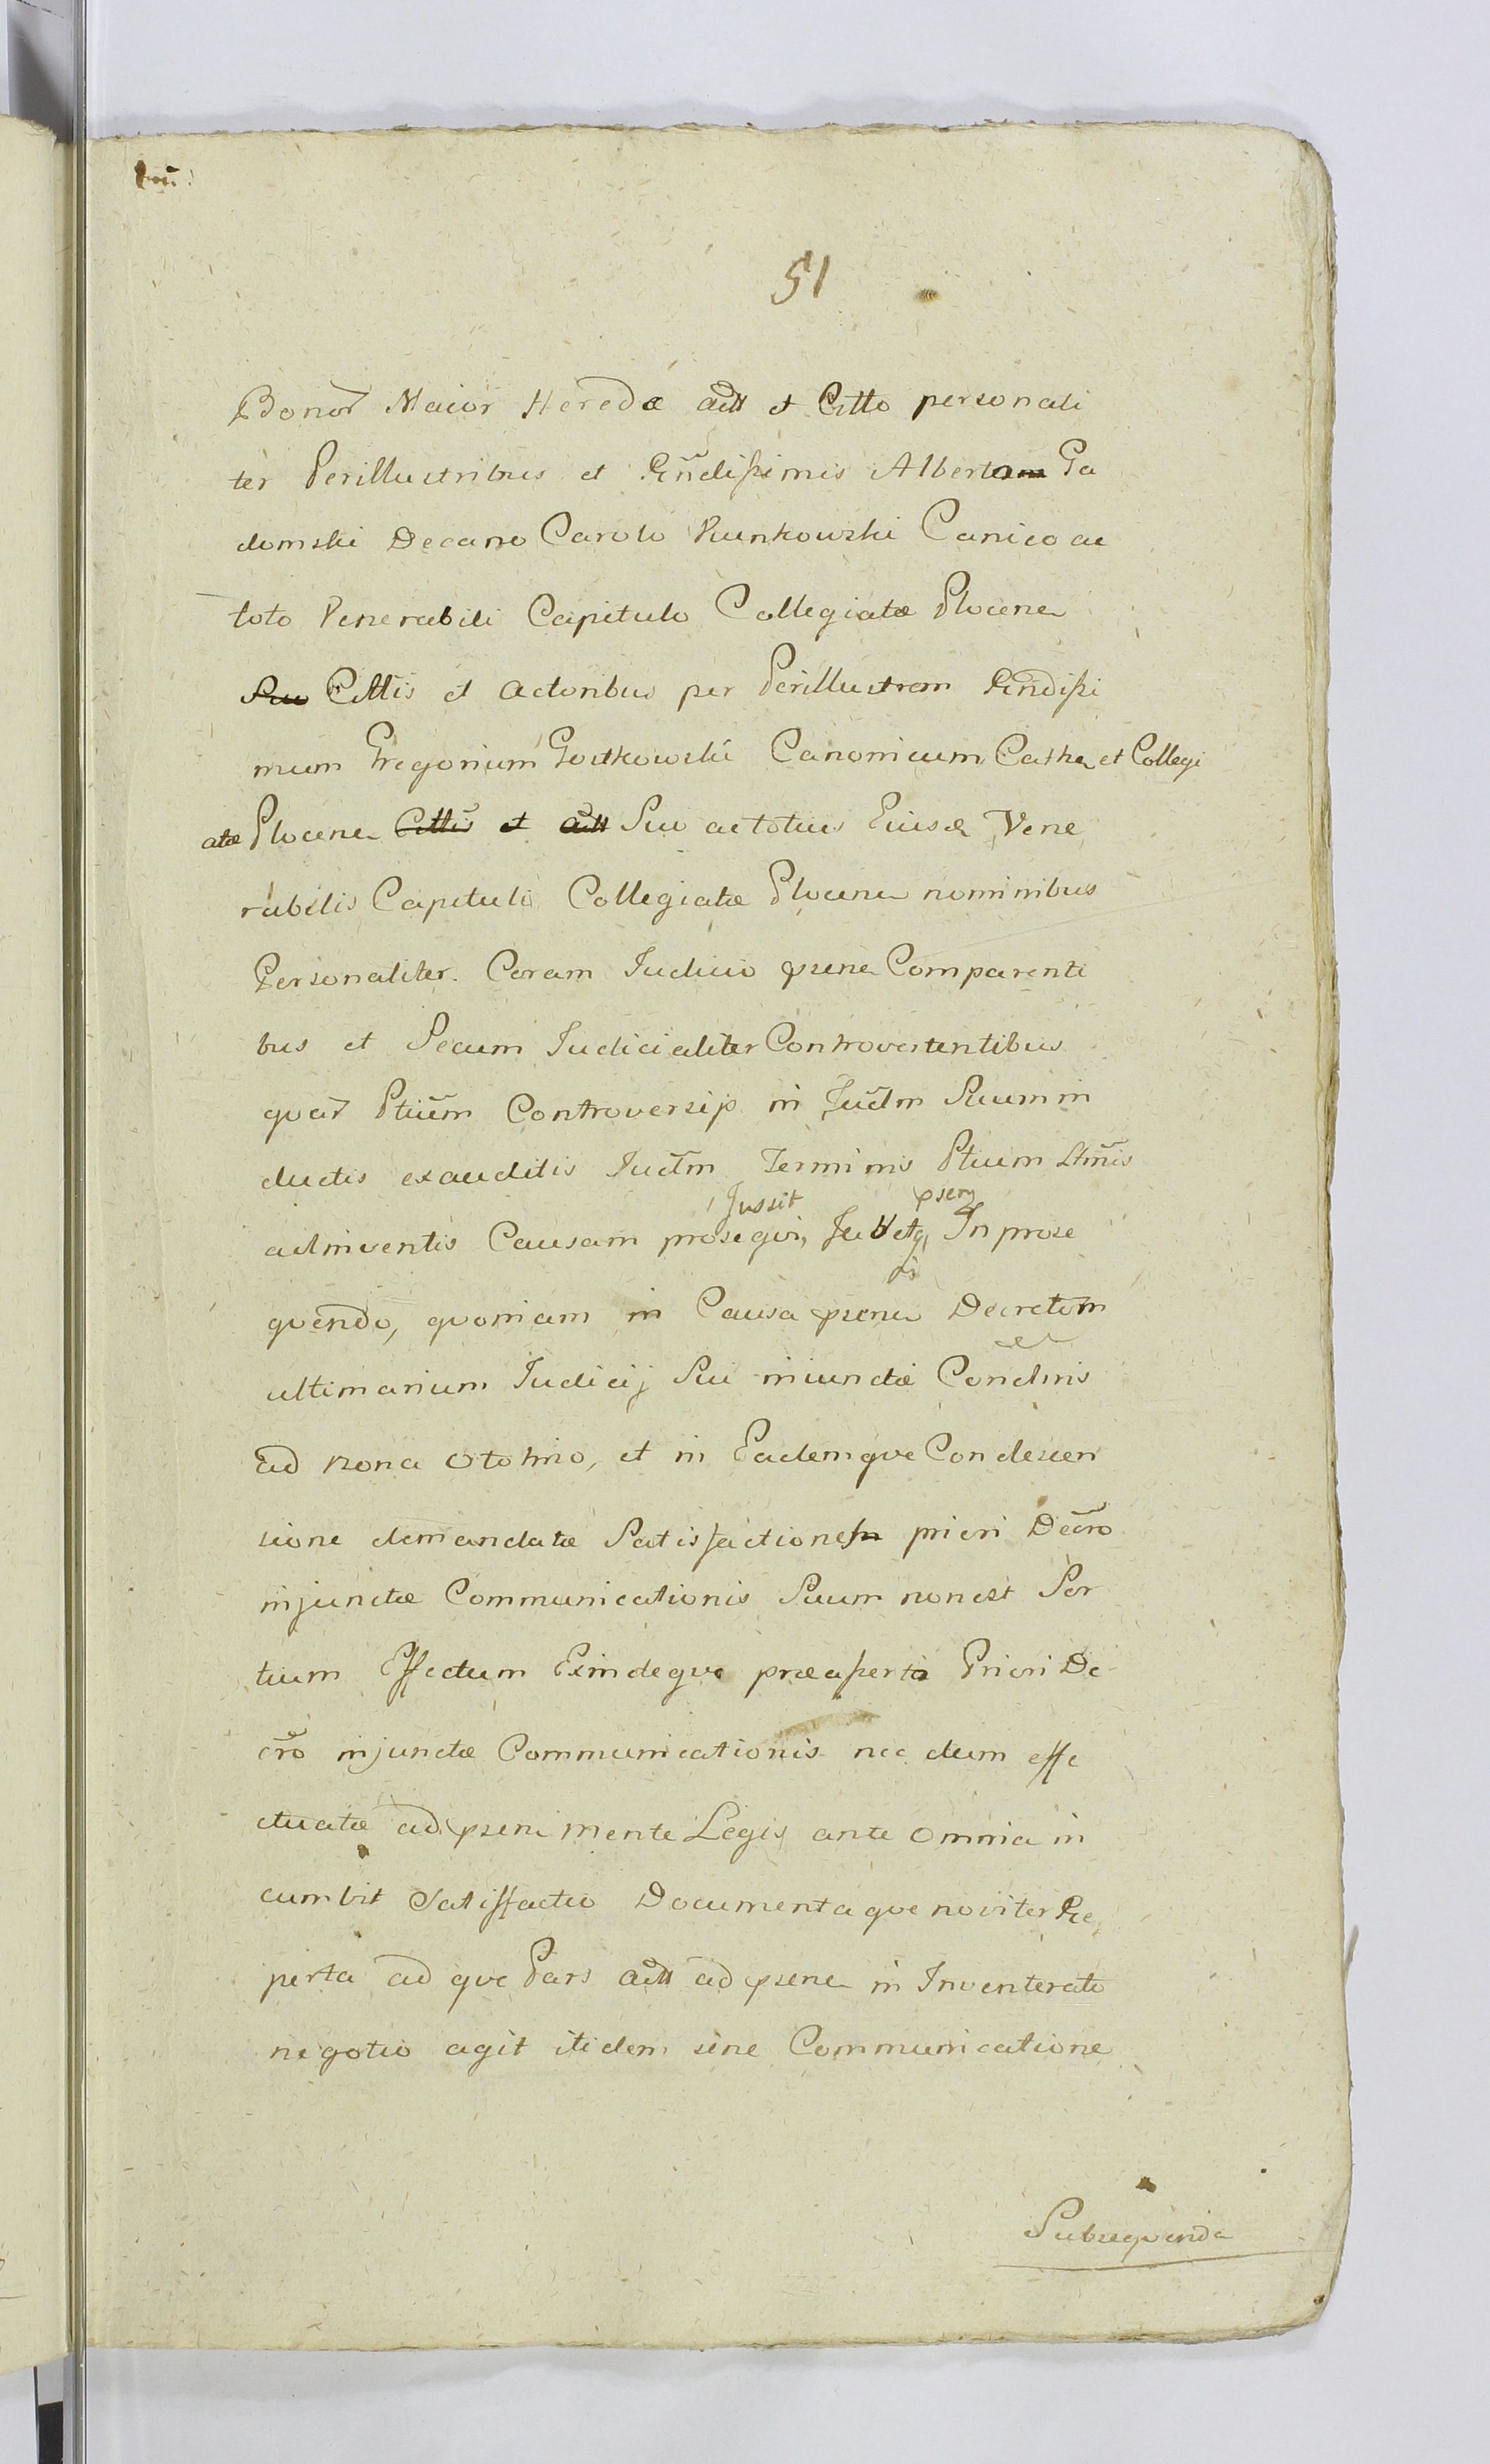 51
Bonor Maior Hereda Actt et Citto personali
ter Perillustribus et Rndißimis Albertam Ga
domski Decano Carolo Kunkowski Canico ac
toto Venerabili Capitulo Collegiatæ Plocene
Suo Cittis et Actoribus per Perillustrem Rndißi
mum Gregorium Gostkowski Canonicum Cathe et Collegi
atæ Plocene Cittis et Actt Suo ac totius Eiusd Vene
rabilis Capituli Collegiatæ Plocene nominibus
Personaliter. Coram Iudicio psene Comparenti
bus et Secum Iudicialiter Controvertentibus
quar Ptium Controversijs in Judm Suum in
ductis exauditis Iudm Terminis Ptium
Jussit psens
adinventis Causam prosequi, Jubetq, In prose
quendo, quoniam in Causa psenti Decretum
ultimarium Iudicij Sui iniunctæ Condnis
ad bona Otolino, et in Eademque Condescen
sione demandatæ Satisfactionem priori Decro
injunctæ Communicationis Suum non est Sor
tium Effectum Exindeque præaßerta Priori De
cro injunctæ Communicationis nec dum effe
ctuatæ ad psens mente Legis ante omnia in
cumbit Satisfactio Documentaque noviter Re
perta ad que Pars Actt ad psens in Inventerato
negotio agit itidem sine Communicatione
Subsequenda